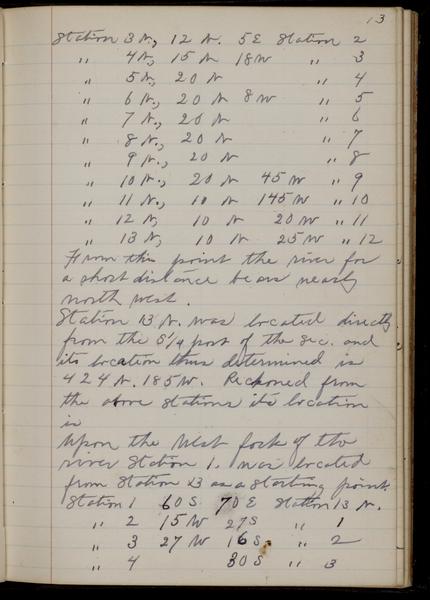 13
Station 3 N., 12 N. 5 E Station 2
" 4 N., 15 N 18 W " 3
" 5 N., 20 N " 4
" 6 N., 20 N 8 W " 5
" 7 N., 20 N " 6
" 8 N., 20 N " 7
" 9 N., 20 N " 8
" 10 N., 20 N 45 W " 9
" 11 N., 10 N 145 W " 10
" 12 N, 10 N 20 W " 11
" 13 N, 10 N 25 W " 12
From this point the river for
a short distance bears nearly
north west.
Station 13 N. was located directly
from the S 1/4 post of the sec. and
its location thus determined is
424 N. 185 W. Reckoned from
the above stations its location
is
Upon the West fork of the
river Station 1. was located
from Station 13 as a starting point.
Station 1 60 S 70 E Station 13 N.
" 2 15 W 27 S " 1
" 3 27 W 16 S " 2
" 4 30 S " 3